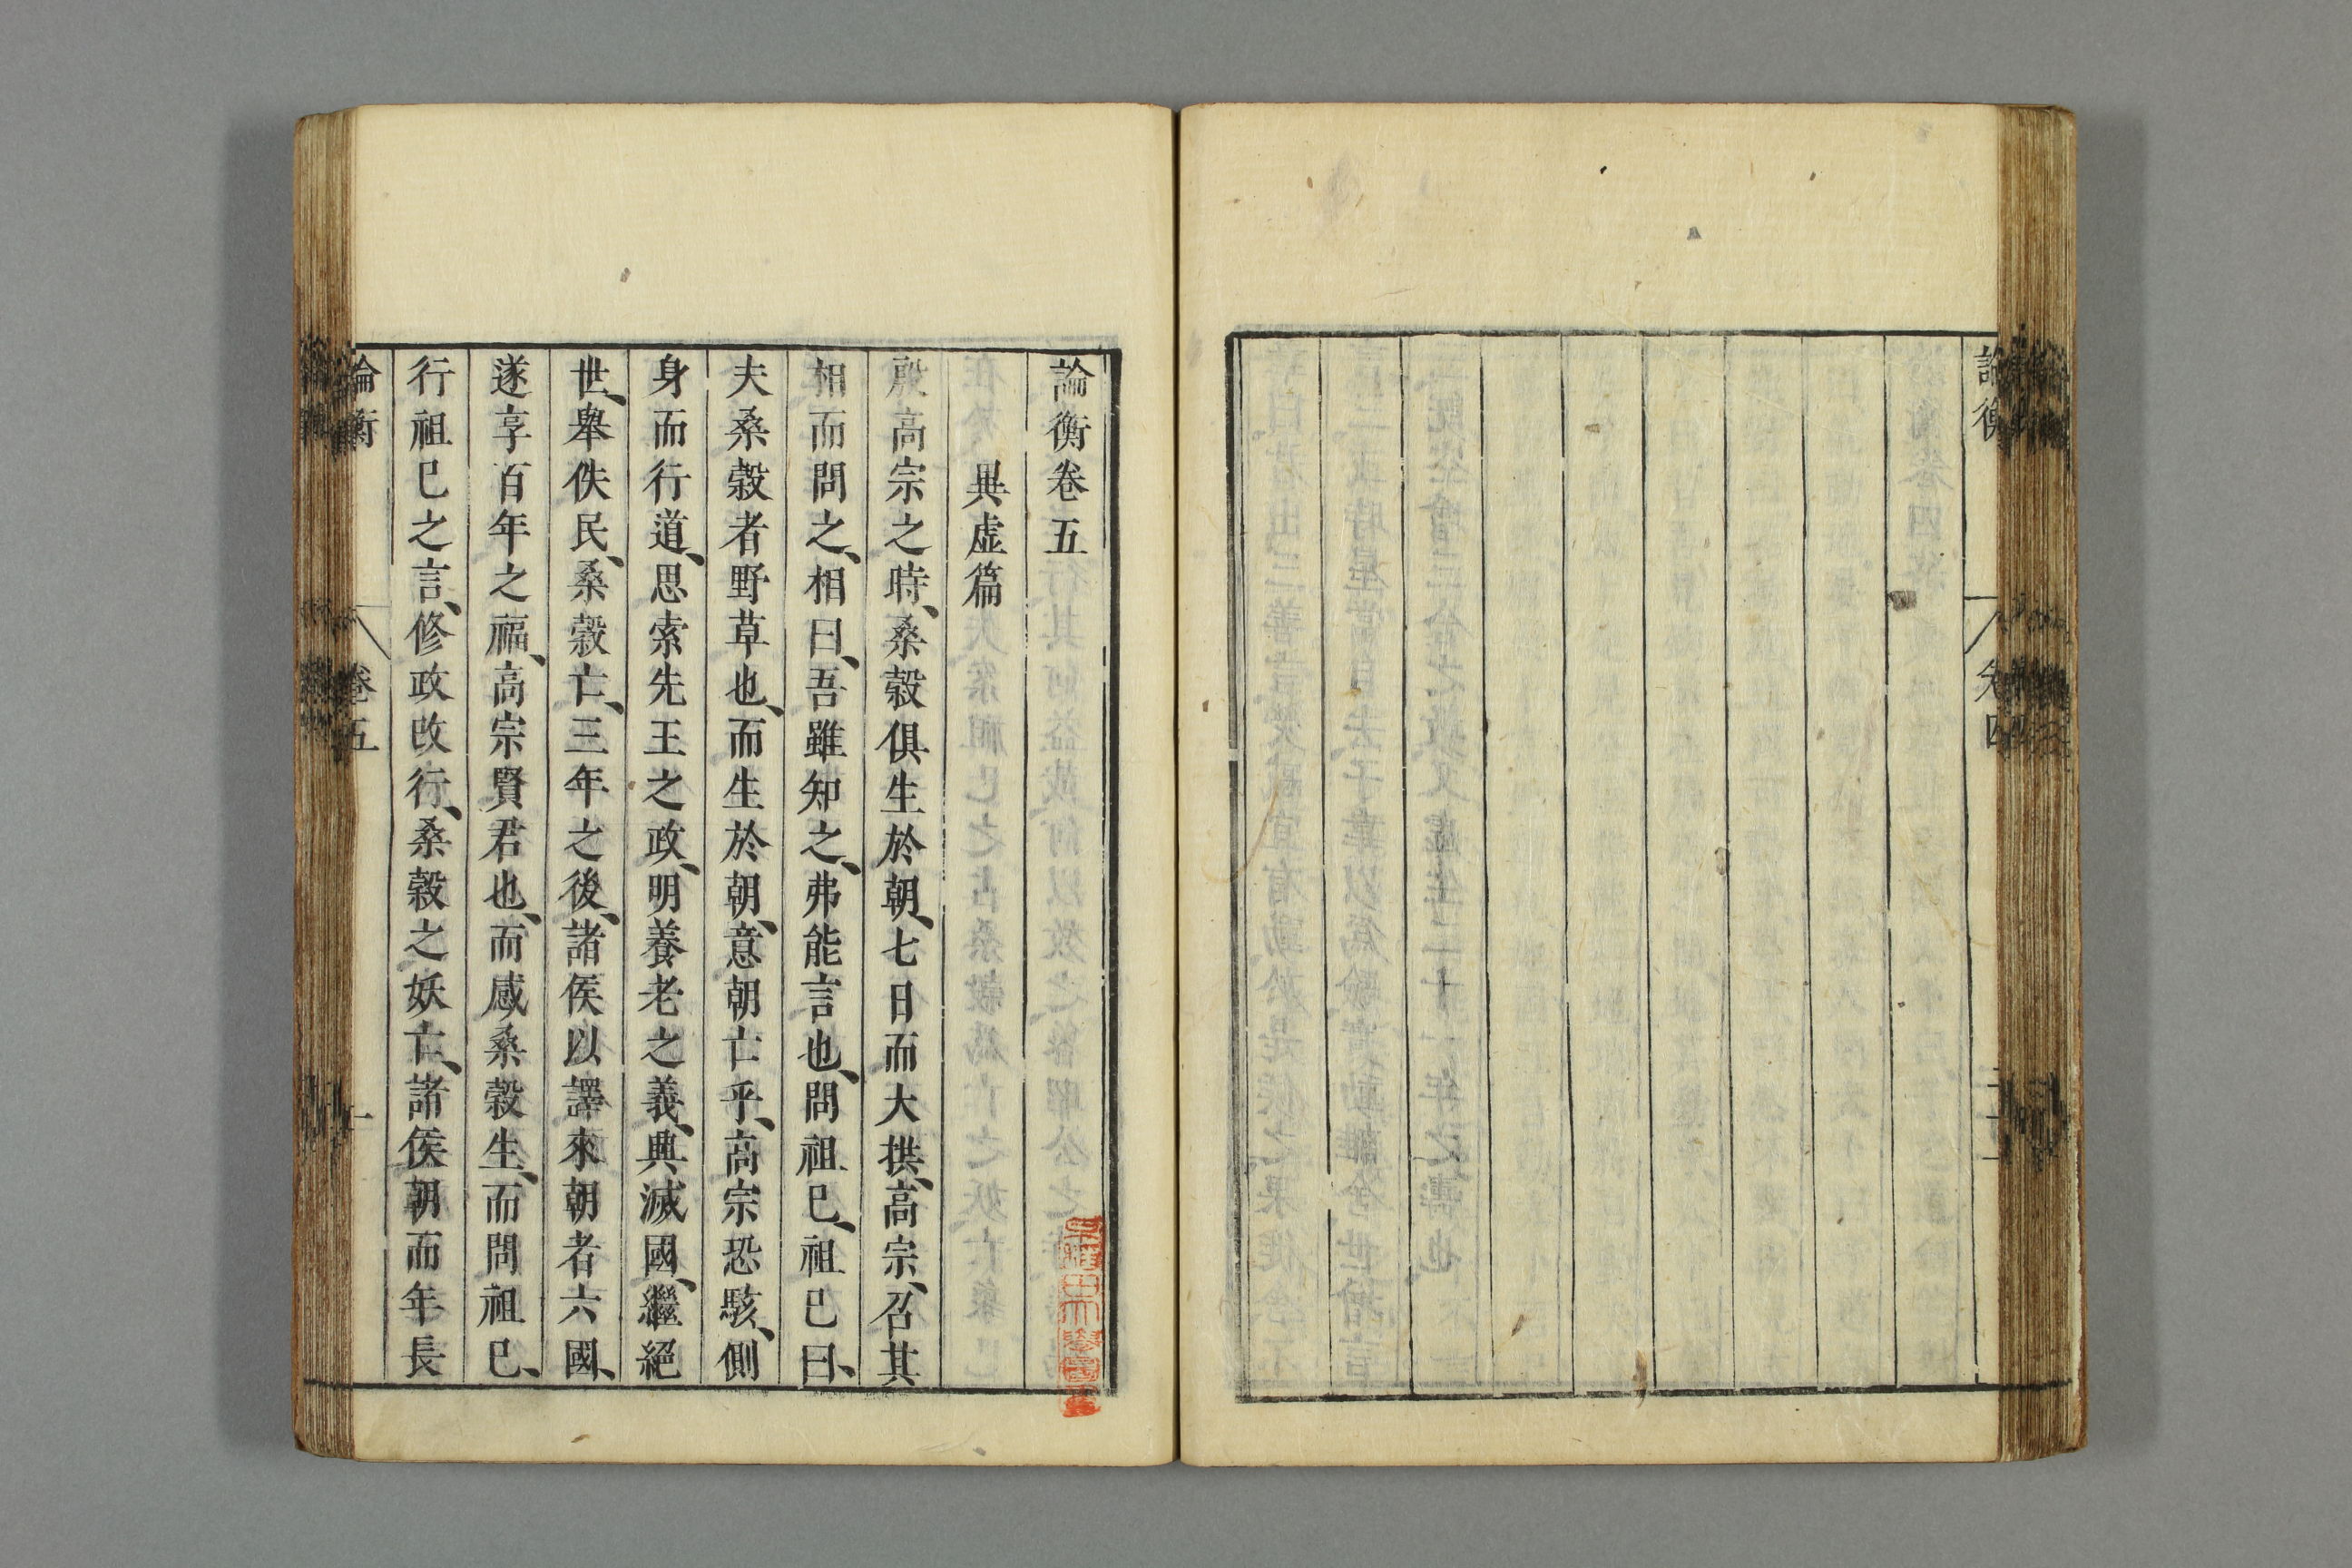 論衡
卷四
論衡卷五
異虛篇
殷高宗之時、桑榖俱生於朝、七日而大拱、高宗、召其
相而問之、相曰、吾雖知之、弗能言也、問祖巳、祖巳曰、
夫桑榖者野草也、而生於朝、意朝亡乎、高宗恐駭、側
身而行道、思索先王之政、明養老之義、興滅國、繼絕
世、舉佚民、桑榖亡、三年之後、諸侯以譯來朝者六國、
遂享百年之福、高宗賢君也、而感桑榖生、而問祖巳、
行祖巳之言、修政改行、桑榖之妖亡、諸侯朝而年長
論衡
卷五
一